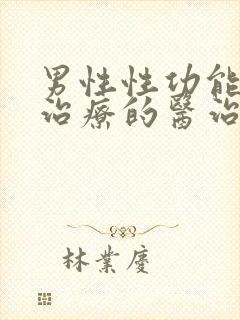 男性性功能
治療的醫治
林業慶